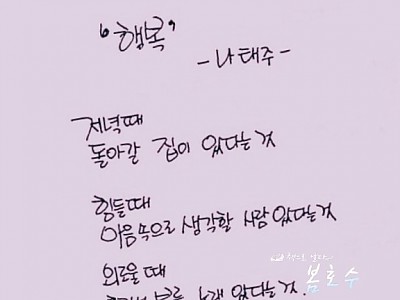 “행복”
- 나태주 -
저녁때
돌아갈 집이 있다는 것
힘들때
마음속으로 생각할 사람 있다는 것
외로울 때
혼자서 부를 노래 있다는 것.
봄호수